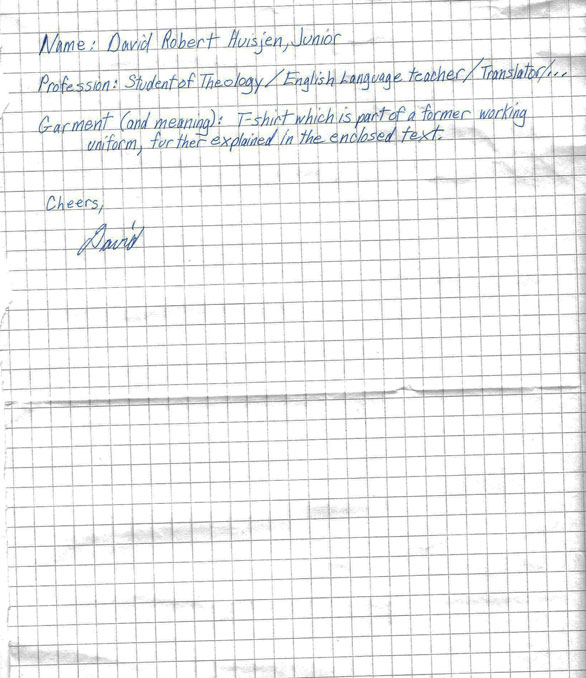 Name: David Robert Huisjen, Junior
Profession: Student of Theology/English Language teacher/Translator/...
Garment (and meaning): T-shirt which is part of a former working
uniform, further explained in the enclosed text.
Cheers,
David